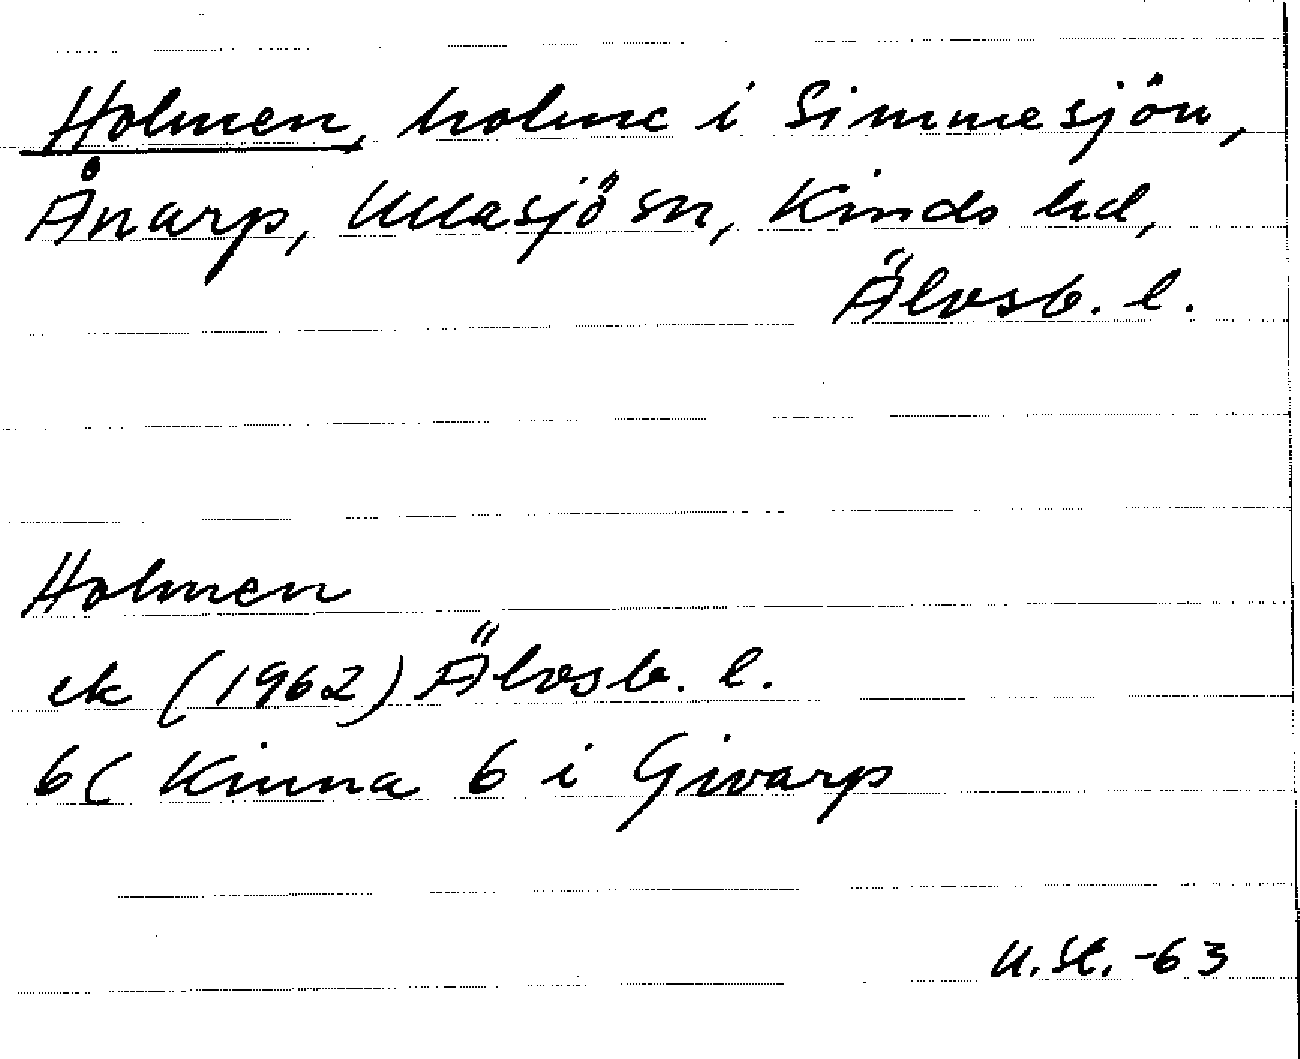 Holmen, holme i Simmesjön,
Ånarp, Ullasjö sn, Kinds hd,
Älvsb. l.
Holmen
ek (1962) Älvsb. l.
6( Kinna 6 i Givarp
U. St. -63